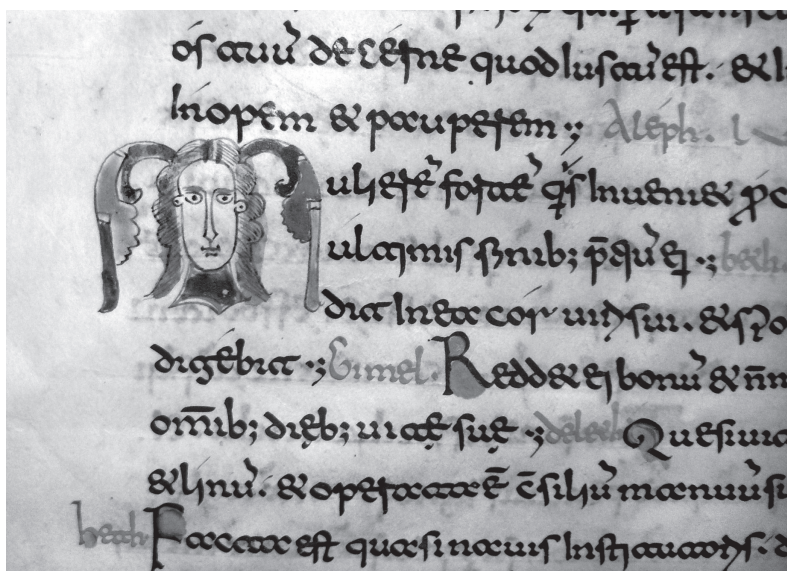 os tuū decerne quod iustū est. & i
Inopem & pauperem ·; Aleph.
Mulierē fortē q̄s Inueni& p̄c
ultimis finib; p̄tiū ei ·; beth.
dit In ea cor uiri sui. & spo
digebit ·; Gimel. Redde& ei bonū & nn̄
om̄ib; dieb; uitę suę ·; deleth Quesiuit
& linū. & operata ē c̄siliū manuū su
heth Facta est quasi nauis Institoris.